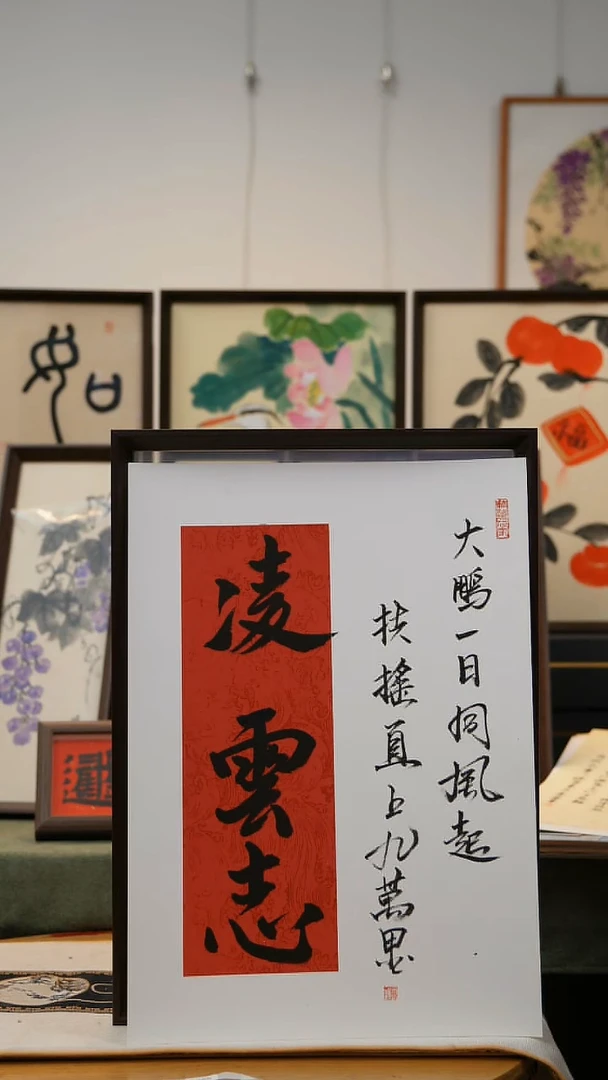 大鵬一日同風起
扶搖直上九萬里
凌雲志
如
福